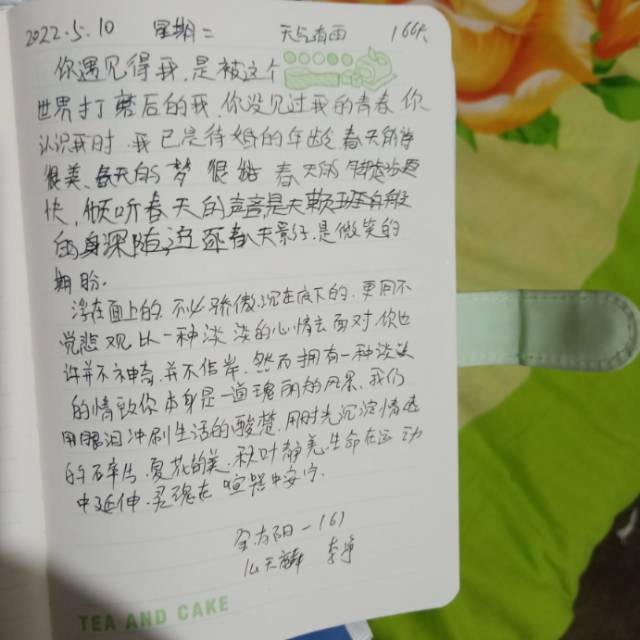 2022.5.10 星期二 天气有雨 166天
你遇见得我,是被这个
世界打磨后的我,你没见过我的青春,你
认识我时,我已是待婚的年龄,春天的
很美,春天的梦很 春天的
快,倾听春天的声音是天
的身深随边逐春天影子,是微笑的
期盼.
浮在面上的,不必骄傲,沉在底下的,更用不
觉悲观,以一种淡淡的心情去面对,你也
许并不神奇,并不伟岸,然而拥有一种淡淡
的情致,你本身是一道瑰丽的风景,我们
用眼泪冲刷生活的酸楚,用时光沉淀情感
的碎片,夏花的美,秋叶静美,生命在运动
中延伸,灵魂在喧嚣中安宁.
TEA AND CAKE